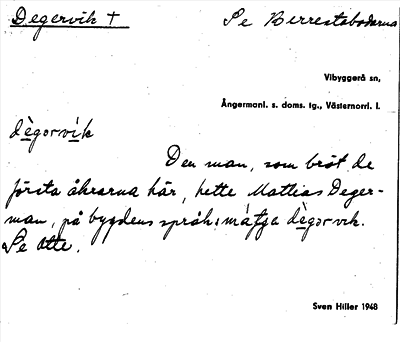 Degervik † Se Berrestabodarna
Vibyggerå sn,
Ångermanl. s. doms. tg., Västernorrl. l.
dègorvik
Den man, som bröt de
första åkrarna här, hette Mattias Deger-
man, på bygdens språk: dègorvik.
Se Otte.
Sven Hiller 1948